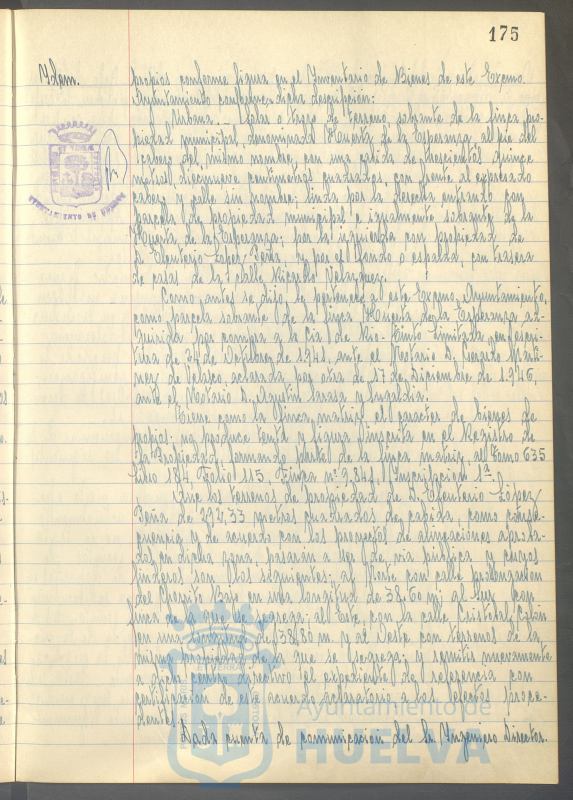 175
Ydem.
propios conforme figura en el Inventario de Bienes de este Excmo.
Ayuntamiento con dicha descripción:
Urbana.- Solar o trozo de terreno sobrante de la finca pro-
piedad municipal denominada Huerta de la Esperanza al pie del
cabezo del mismo nombre, con una cabida de doscientos quince
metros, diecinueve centímetros cuadrados, con frente al expresado
cabezo y calle sin nombre; linda por la derecha entrando con
parcela de propiedad municipal e igualmente sobrante de la
Huerta de la Esperanza; por la izquierda con propiedad de
D. Eleuterio López Peña y por el fondo o espalda, con trasera
de casas de la calle Ricardo Velázquez.
Como antes se dijo, le pertenece al este Excmo. Ayuntamiento,
como parcela sobrante de la finca Huerta de la Esperanza ad-
quirida por compra a la Cía de Rio-Tinto limitada, en escri-
tura de 24 de Octubre de 1941, ante el Notario D. Gerardo Martí-
nez de Velasco, aclarada por otra de 17 de Diciembre de 1.946,
ante el Notario D. Agustín Sarasa y Zugaldia.
Tiene como la finca matriz el carácter de bienes de
propios; no produce renta y figura inscrita en el Registro de
la Propiedad formando parte de la finca matriz, al Tomo 635
Libro 184, Folio 115, Finca nº 9.841, Inscripción 1ª.
Que los terrenos de propiedad de D. Eleuterio López
Peña de 292,33 metros cuadrados de cabida, como conse-
cuencia y de acuerdo con los proyectos de alineaciones aproba-
das en dicha zona, pasarán a ser de vía pública y cuyos
linderos son los siguientes: al Norte con calle prolongación
del Chorrito Bajo en una longitud de 38,60 m; al Sur, con
finca de la que se segrega; al Este, con la calle Cristóbal Colón
en una longitud de 38,80 m. y al Oeste con terrenos de la
misma propiedad de la que se segrega; y remitir nuevamente
a dicho centro directivo el expediente de referencia con
certificación de este acuerdo aclaratorio a los efectos proce-
dentes.
Dada cuenta de comunicación del Sr. Ingeniero Director
AYUNTAMIENTO DE HUELVA
Ayuntamiento de
HUELVA